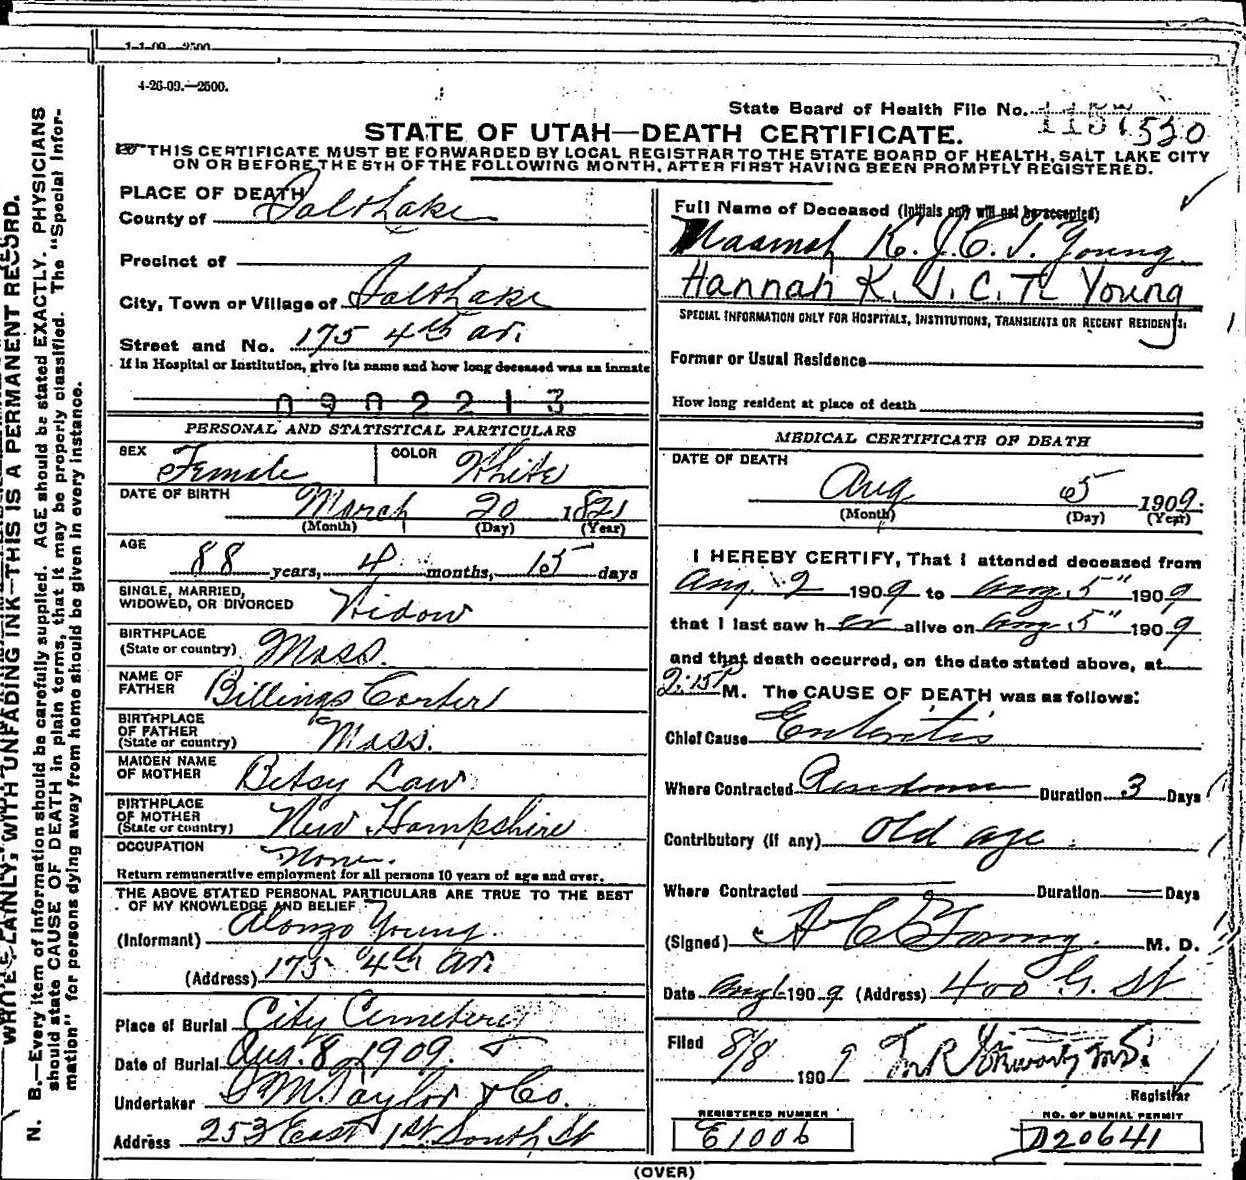 1-1-09—2500
4-26-09.—2500.
State Board of Health File No. 1157 520
STATE OF UTAH—DEATH CERTIFICATE.
THIS CERTIFICATE MUST BE FORWARDED BY LOCAL REGISTRAR TO THE STATE BOARD OF HEALTH, SALT LAKE CITY
ON OR BEFORE THE 5TH OF THE FOLLOWING MONTH, AFTER FIRST HAVING BEEN PROMPTLY REGISTERED.
WRITE PLAINLY, WITH UNFADING INK—THIS IS A PERMANENT RECORD.
N. B.—Every item of information should be carefully supplied. AGE should be stated EXACTLY. PHYSICIANS
should state CAUSE OF DEATH in plain terms, that it may be properly classified. The "Special Infor-
mation" for persons dying away from home should be given in every instance.
PLACE OF DEATH
County of Salt Lake
Precinct of
City, Town or Village of Salt Lake
Street and No. 175 4th av.
If in Hospital or Institution, give its name and how long deceased was an inmate
0902213
PERSONAL AND STATISTICAL PARTICULARS
SEX Female COLOR White
DATE OF BIRTH March 20 1821
(Month) (Day) (Year)
AGE 88 years, 4 months, 15 days
SINGLE, MARRIED,
WIDOWED, OR DIVORCED Widow
BIRTHPLACE
(State or country) Mass.
NAME OF
FATHER Billings Carter
BIRTHPLACE
OF FATHER
(State or country) Mass.
MAIDEN NAME
OF MOTHER Betsy Law
BIRTHPLACE
OF MOTHER
(State or country) New Hampshire
OCCUPATION
None.
Return remunerative employment for all persons 10 years of age and over.
THE ABOVE STATED PERSONAL PARTICULARS ARE TRUE TO THE BEST
OF MY KNOWLEDGE AND BELIEF
(Informant) Alonzo Young.
(Address) 175 4th av.
Place of Burial City Cemetery
Date of Burial Aug. 8, 1909.
Undertaker S.M. Taylor & Co.
Address 253 East 1st South St
Full Name of Deceased (Initials only will not be accepted)
Naamah K. J. C. T. Young
Hannah K. J. C. T. Young
SPECIAL INFORMATION ONLY FOR HOSPITALS, INSTITUTIONS, TRANSIENTS OR RECENT RESIDENTS:
Former or Usual Residence
How long resident at place of death
MEDICAL CERTIFICATE OF DEATH
DATE OF DEATH
Aug 5 1909.
(Month) (Day) (Year)
I HEREBY CERTIFY, That I attended deceased from
Aug. 2 1909 to Aug 5" 1909
that I last saw her alive on Aug 5" 1909
and that death occurred, on the date stated above, at
2:15P M. The CAUSE OF DEATH was as follows:
Chief Cause Enteritis
Where Contracted Duration 3 Days
Contributory (if any) old age
Where Contracted Duration Days
(Signed) H C Young. M. D.
Date Aug 1909 (Address) 400 G. St
Filed 8/8 1909 M.D.
Registrar
REGISTERED NUMBER
E1006
NO. OF BURIAL PERMIT
D20641
(OVER)